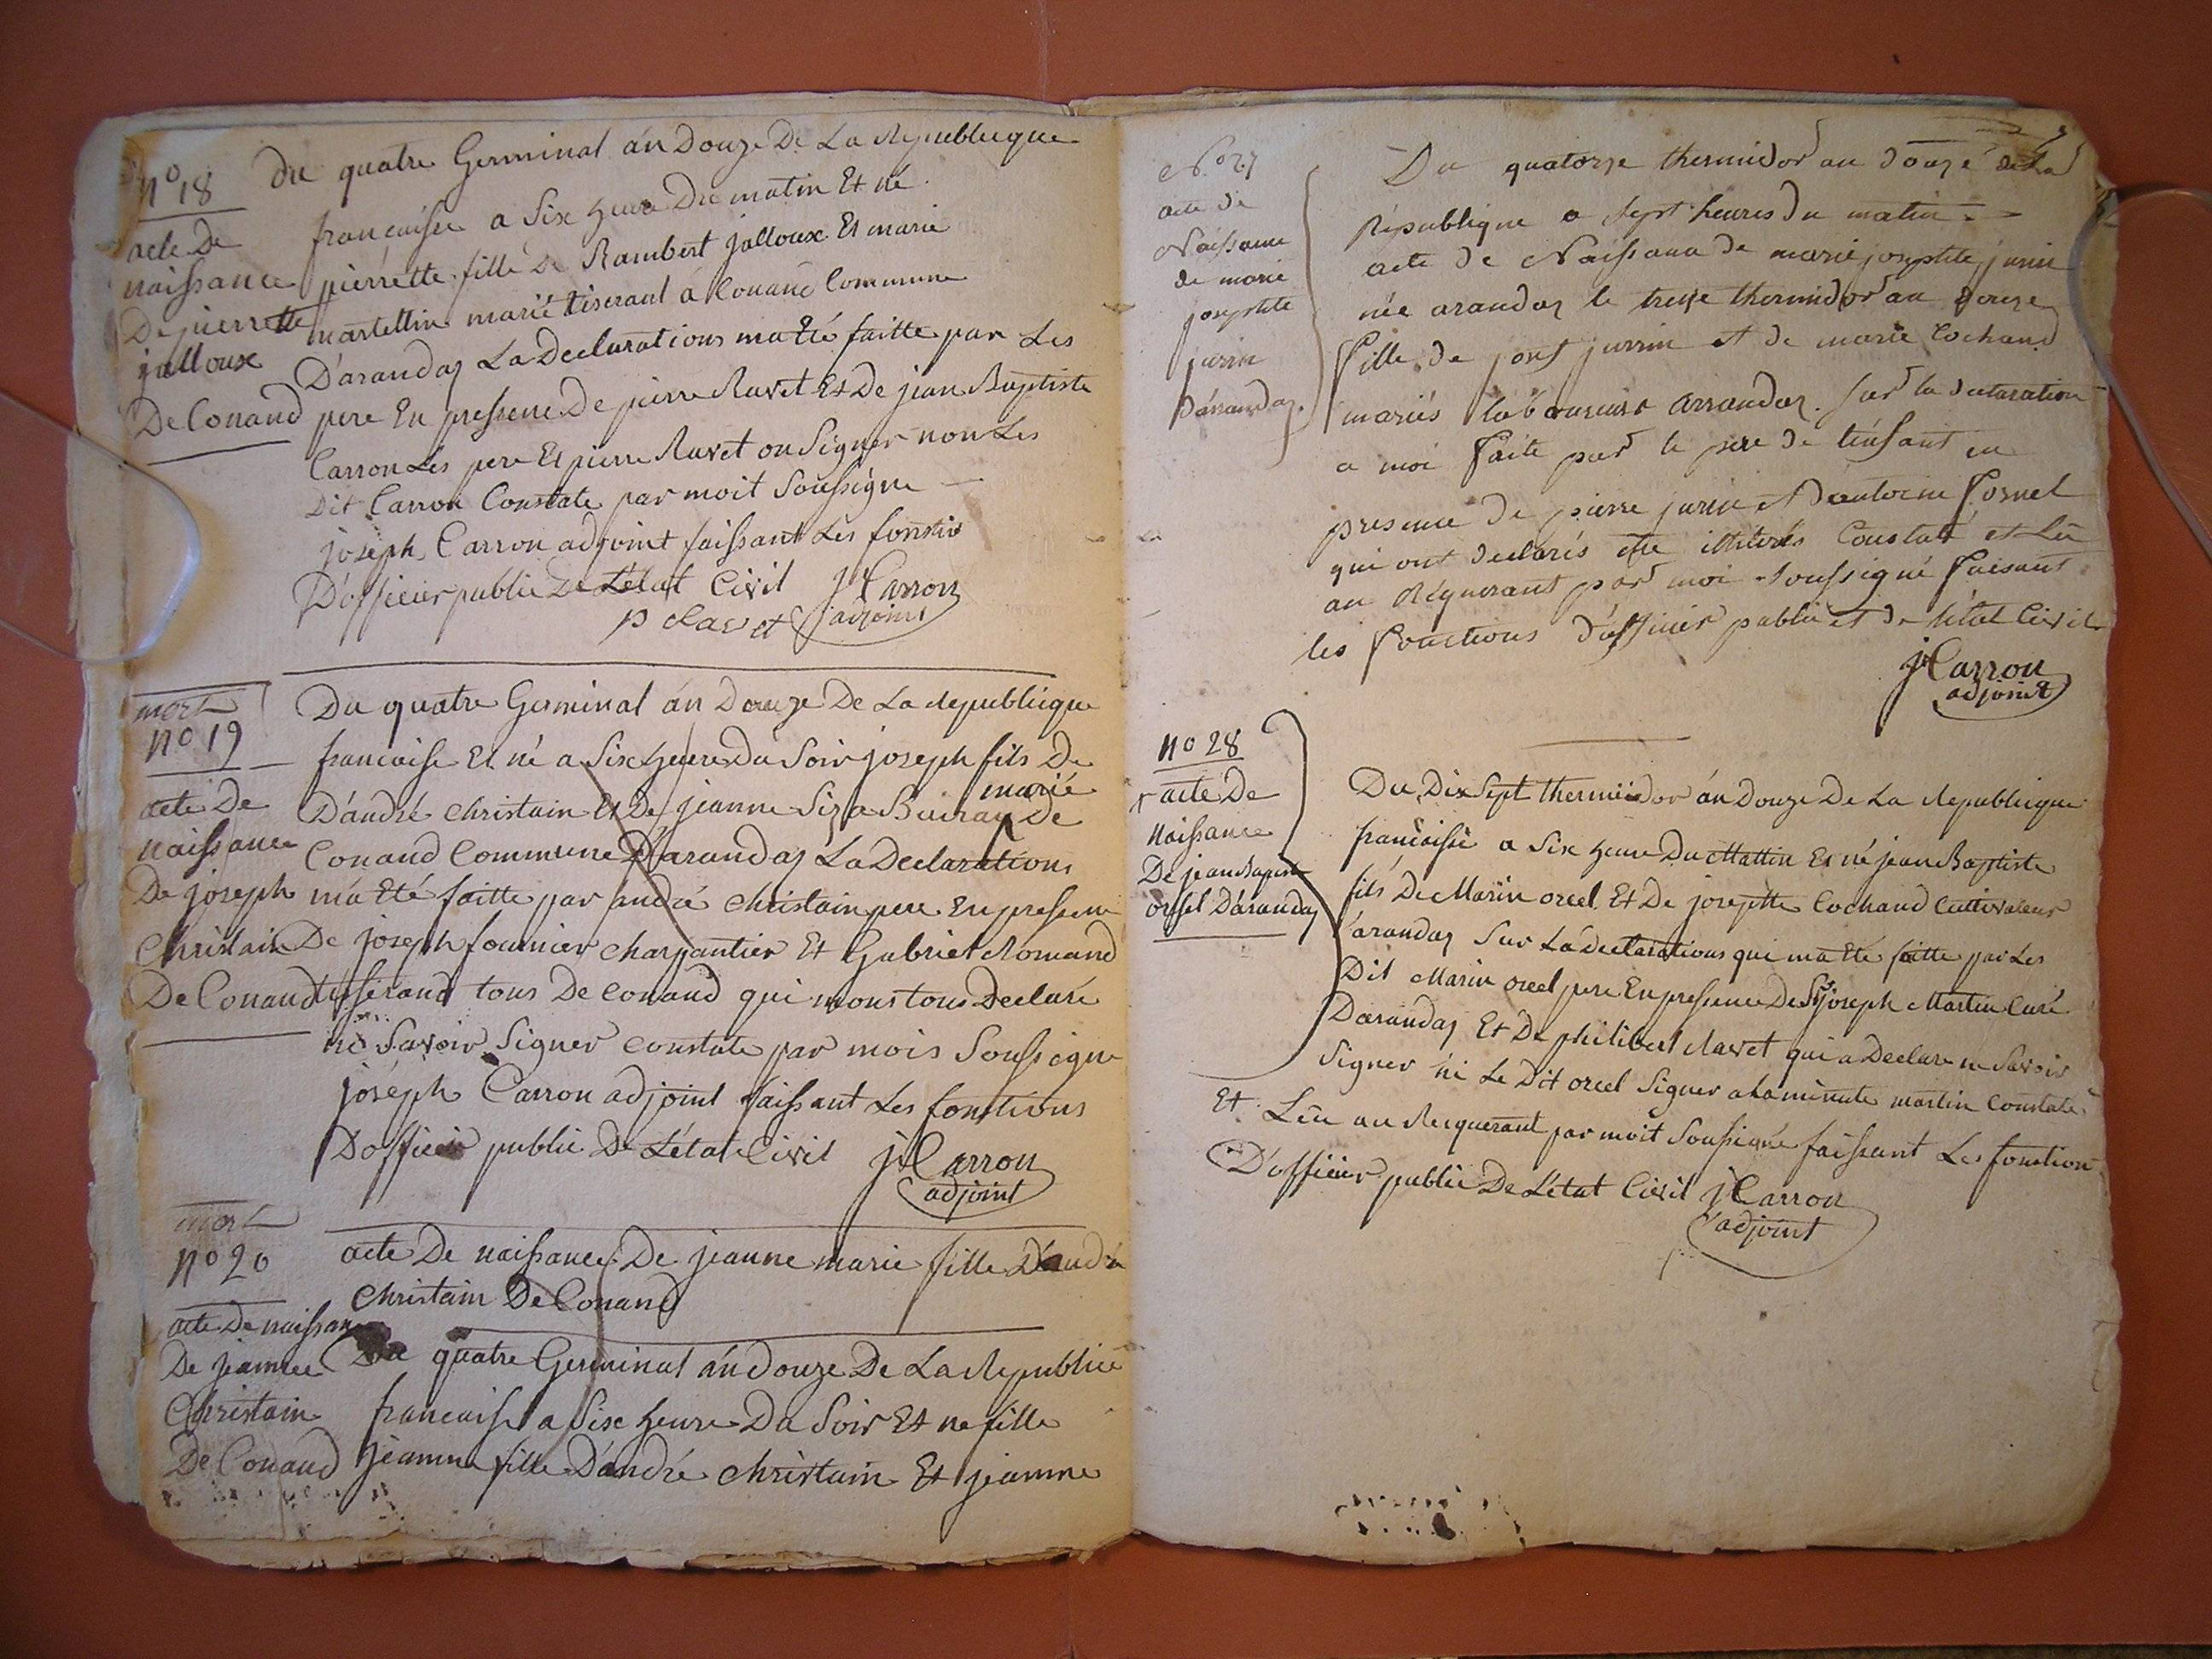 n° 18
acte De
naissance
De pierrette
jalloux
De Conand
du quatre Germinal án Douze De La Republicque
francaisse a Six heure Du matin Et né
pierrétte fille De Rambert jalloux Et marie
martellin marié tiserant á Conand Commune
D'arandas La Declarations ma Eté faitte par Les
pere En pressence De pierre Ravet Et De jean Baptiste
Carron Les pere Et pierre Ravet on Signer non Les
Dit Carron Constate par moit Soussigne
joseph Carron adjoint faissant Les fonstio
D'officier public De L'état Civil j Carron
p Ravet adjoint
mort
n° 19
acte De
naissance
De joseph
Christain
De Conand
Du quatre Germinal án Douze De La Republicque
francaisse Et né a Six heure Du Soir joseph fils De
marié
D'andré Christain Et De jeanne De
Conand Commune D'arandas La Declarations
má Eté faitte par andré Christain pere En pressence
De joseph fournier charpantier Et Gabriel Romand
tisserand tous De Conand qui mons tous Declaré
né Savoir Signer Constate par mois Soussigne
joséph Carron adjoint faissant Les fonstions
D'officier public De L'état Civil j Carron
adjoint
mort
n° 20
acte De naissan
De jeanne
Christain
De Conand
acte De naissance De jeanne marie fille D'andré
Christain De Conand
Du quatre Germinal án Douze De La Republice
francaisse a Six heure Du Soir Et ne fille
jeanne fille D'andré Christain Et jeanne
N° 27
acte de
Naissance
de marie
josephte
jurin
D'arrandas.
Du quatorze thermidor an douze de La
République a sept heures du matin
acte de Naissance de marie josephte jurin
née arandas le treize thermidor an douze
fille de josef jurrin et de marie Cochand
mariés laboureurs arrandas. sur la declaration
a moi faite par le pere de l'enfant en
presence de pierre jurin et d'antoine Fornet
qui ont declarés etre illiterés Constaté et Lû
au Réquerant par moi soussigné faisant
les fonctions d'officier public et de l'état Civil
j Carron
adjoint
n° 28
acte De
Naissance
De jean Baptiste
orssel D'arandas
Du Dix Sept thermidor án Douze De La Republicque
francaisse a Six heure Du Mattin Et né jean Baptiste
fils De Marin orcel Et De josephte Cochand Cultivateur
'arandas Sur La declarations qui ma Eté faitte par Les
Dit Marin orcel pere En pressence De St joseph Martin Curé
Darandas Et De philibert Ravet qui a Declare ne Savoir
Signer ni Le Dit orcel Signer a La minute martin Constate
Et Lûe au Requerant par moit Soussigné faissant Les fonction
D'officier public De L'état Civil j Carron
adjoint